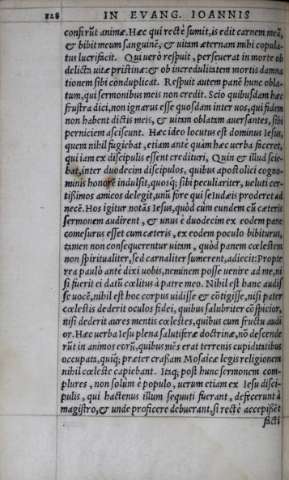 328 IN EVANG. IOANNIS
confirūt animæ. Hæc qui rectè sumit, is edit carnem meā,
& bibit meum sanguinē, & uitam æternam mihi copula-
tus lucrificit. Qui uerò respuit, perseuerat in morte ob
delicta uitæ pristinæ: & ob incredulitatem mortis damna
tionem sibi conduplicat. Respuit autem panē hunc obla-
tum, qui sermonibus meis non credit. Scio quibusdam hæc
frustra dici, non ignarus esse quosdam inter uos, qui fidem
non habent dictis meis, & uitam oblatam auersantes, sibi
perniciem asciscunt. Hæc ideo locutus est dominus Iesus,
quem nihil fugiebat, etiam antè quàm hæc uerba fieret,
qui iam ex discipulis essent credituri. Quin & illud scie-
bat, inter duodecim discipulos, quibus apostolici cogno-
minis honorē indulsit, quosq; sibi peculiariter, ueluti cer-
tissimos amicos delegit, unū fore qui se Iudæis proderet ad
necē. Hos igitur notās Iesus, quòd cùm eundem cū cæteris
sermonem audirent, & unus è duodecim ex eodem pane
comesurus esset cum cæteris, ex eodem poculo bibiturus,
tamen non consequerentur uitam, quòd panem cœlestem
non spiritualiter, sed carnaliter sumerent, adiecit: Propte
rea paulò antè dixi uobis, neminem posse uenire ad me, ni
si fuerit ei datū cœlitus à patre meo. Nihil est hanc audis
se uocē, nihil est hoc corpus uidisse & cōtigisse, nisi pater
cœlestis dederit oculos fidei, quibus salubriter cōspicior,
nisi dederit aures mentis cœlestes, quibus cum fructu audi
or. Hæc uerba Iesu plena salutiferæ doctrinæ, nō descende
rūt in animos eorū, quibus mēs erat terrenis cupiditatibus
occupata, quiq; præter crassam Mosaicæ legis religionem
nihil cœleste capiebant. Itaq; post hunc sermonem com-
plures, non solum è populo, uerum etiam ex Iesu disci-
pulis, qui hactenus illum sequuti fuerant, defecerunt à
magistro, & unde proficere debuerant, si rectè accepissēt
facti